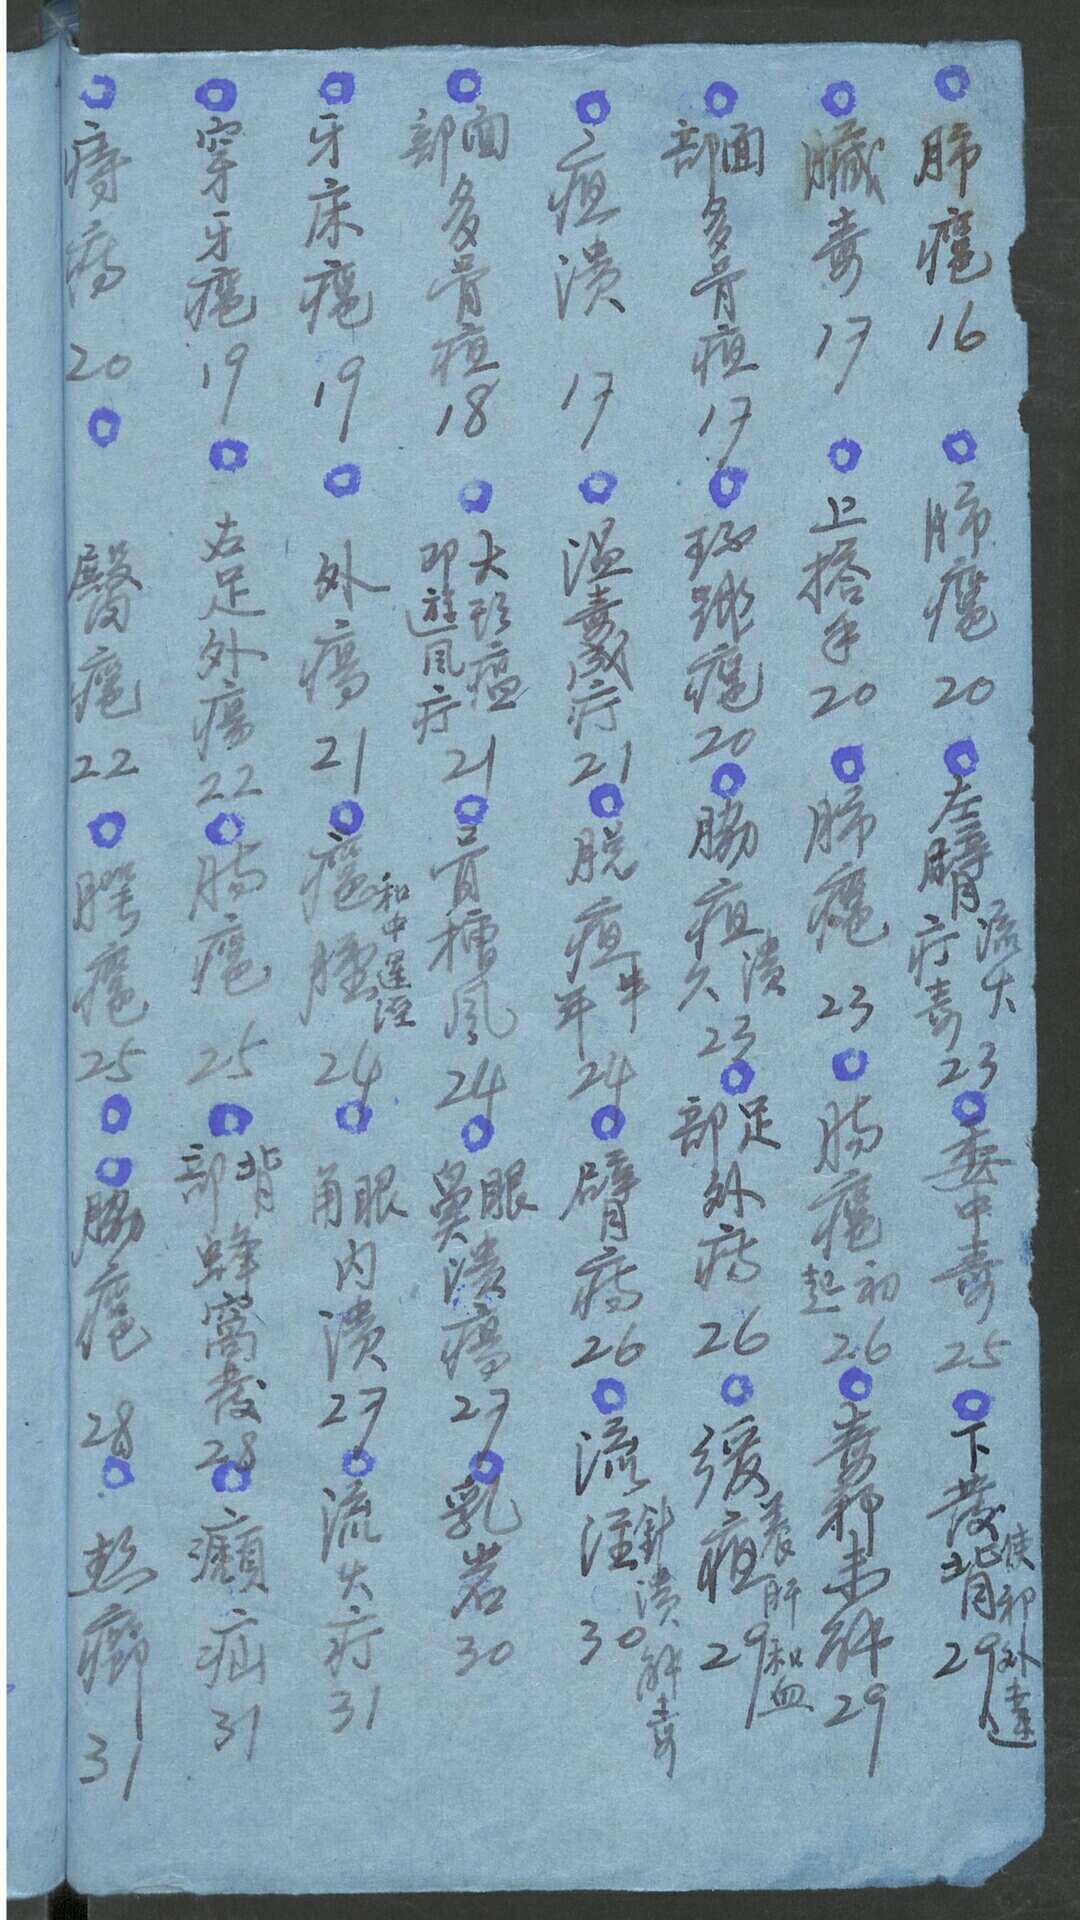 肺癰16 肺癰20 左臂流火疔毒23 委中毒25 下發背使邪外達29
臟毒17 上搭手20 肺癰23 腸癰初起26 毒邪未解29
面部多骨疽17 環跳癰20 脇疽久潰23 足部外瘍26 緩疽養肝和血29
疽潰17 溫毒成疔21 脫疽半年24 臂瘍26 流注針潰解毒30
面部多骨疽18 大頭瘟即遊風疔21 骨槽風24 眼鼻潰瘍27 乳岩30
牙床癰19 外瘍21 癰腫和中運溼24 眼角內潰27 流火疔31
穿牙癰19 右足外瘍22 腸癰25 背部蜂窩發28 㿗疝31
痔瘍20 臀癰22 腭癰25 脇癰28 熱癤31